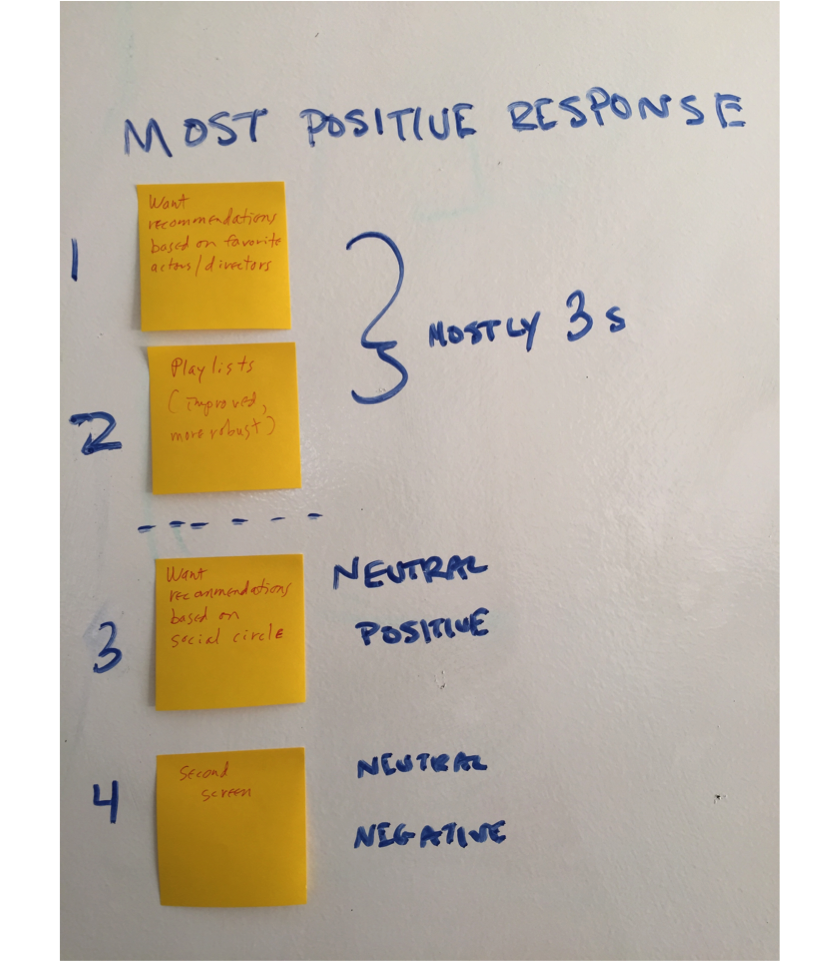 MOST POSITIVE RESPONSE
1
Want
recommendations
based on favorite
actors/directors
MOSTLY 3s
2
Playlists
(improved,
more robust)
3
Want
recommendations
based on
social circle
NEUTRAL
POSITIVE
4
Second
screen
NEUTRAL
NEGATIVE